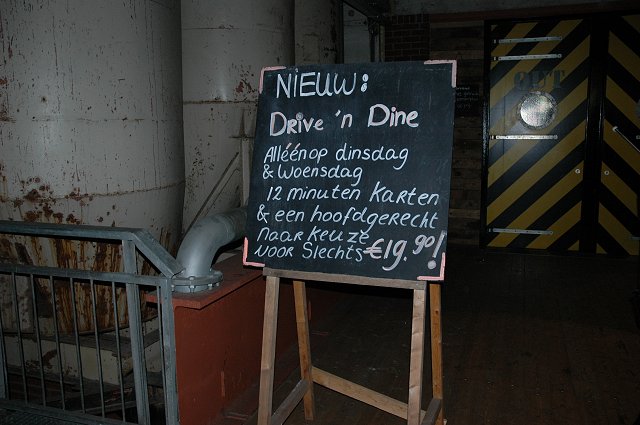 NIEUW:
Drive 'n Dine
Alléén op dinsdag
& Woensdag
12 minuten Karten
& een hoofdgerecht
naar keuze
voor Slechts €19.90!